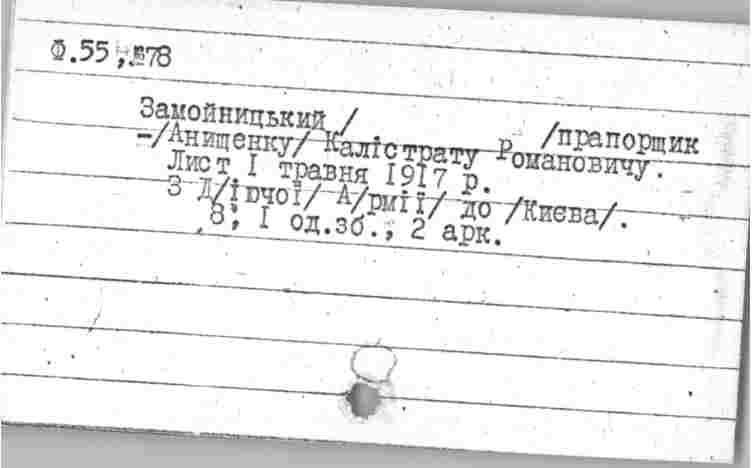 Ф.55, №78
Замойницький / /прапорщик
-/Анищенку/ Калістрату Романовичу.
Лист I травня 1917 р.
З Д/іючої/ А/рмії/ до /Києва/.
8°, I од.зб., 2 арк.